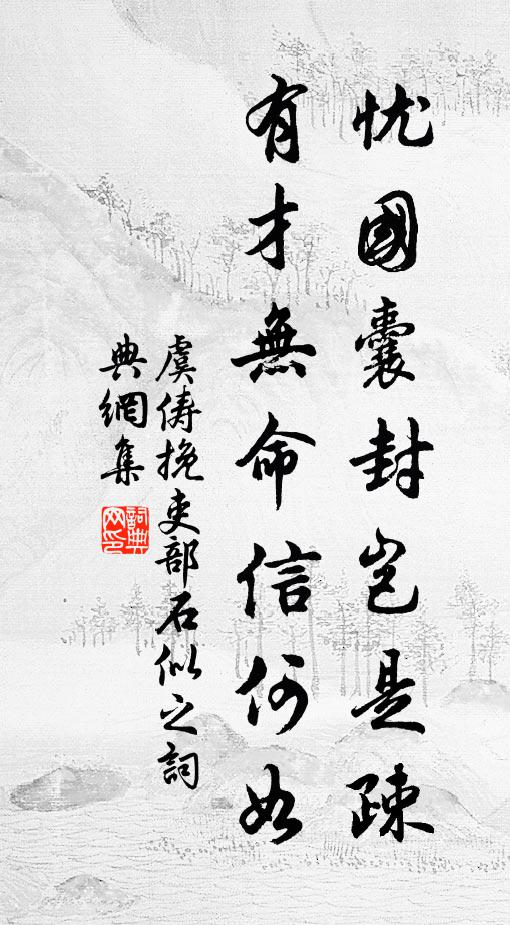 忧國囊封岂是踈
有才無命信何如
虞俦挽吏部石似之詞
典網集
詞典网印